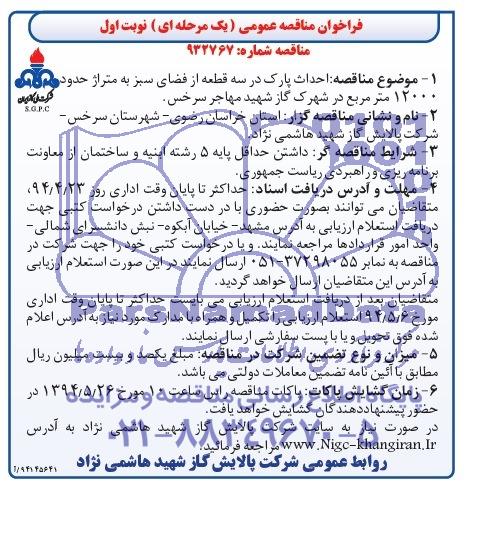 فراخوان مناقصه عمومی (یک مرحله ای) نوبت اول
مناقصه شماره: ۹۳۲۷۶۷
شرکت ملی گاز ایران
S.G.P.C
۱- موضوع مناقصه: احداث پارک در سه قطعه از فضای سبز به متراژ حدود
۱۲۰۰۰ متر مربع در شهرک گاز شهید مهاجر سرخس.
۲- نام و نشانی مناقصه گزار: استان خراسان رضوی- شهرستان سرخس-
شرکت پالایش گاز شهید هاشمی نژاد
۳- شرایط مناقصه گر: داشتن حداقل پایه ۵ رشته ابنیه و ساختمان از معاونت
برنامه ریزی و راهبردی ریاست جمهوری.
۴- مهلت و آدرس دریافت اسناد: حداکثر تا پایان وقت اداری روز ۹۴/۴/۲۳،
متقاضیان می توانند بصورت حضوری با در دست داشتن درخواست کتبی جهت
دریافت استعلام ارزیابی به آدرس مشهد- خیابان آبکوه- نبش دانشسرای شمالی-
واحد امور قراردادها مراجعه نمایند. و یا درخواست کتبی خود را جهت شرکت در
مناقصه به نمابر ۳۷۲۹۸۰۵۵-۰۵۱ ارسال نمایند در این صورت استعلام ارزیابی
به آدرس این متقاضیان ارسال خواهد گردید.
متقاضیان بعد از دریافت استعلام ارزیابی می بایست حداکثر تا پایان وقت اداری
مورخ ۹۴/۵/۶ استعلام ارزیابی را تکمیل و همراه با مدارک مورد نیاز به آدرس اعلام
شده فوق تحویل و یا با پست سفارشی ارسال نمایند.
۵- میزان و نوع تضمین شرکت در مناقصه: مبلغ یکصد و بیست میلیون ریال
مطابق با آئین نامه تضمین معاملات دولتی می باشد.
۶- زمان گشایش پاکات: پاکات مناقصه راس ساعت ۱۰ مورخ ۱۳۹۴/۵/۲۶ در
حضور پیشنهاد دهندگان گشایش خواهد یافت.
در صورت نیاز به سایت شرکت پالایش گاز شهید هاشمی نژاد به آدرس
www.Nigc-khangiran.Ir مراجعه فرمائید.
روابط عمومی شرکت پالایش گاز شهید هاشمی نژاد
۹۴۱۴۵۶۴۱/آ
پایگاه اطلاع رسانی مناقصه و مزایده
۰۲۱-۸۸۳۴۹۶۷۰-۵